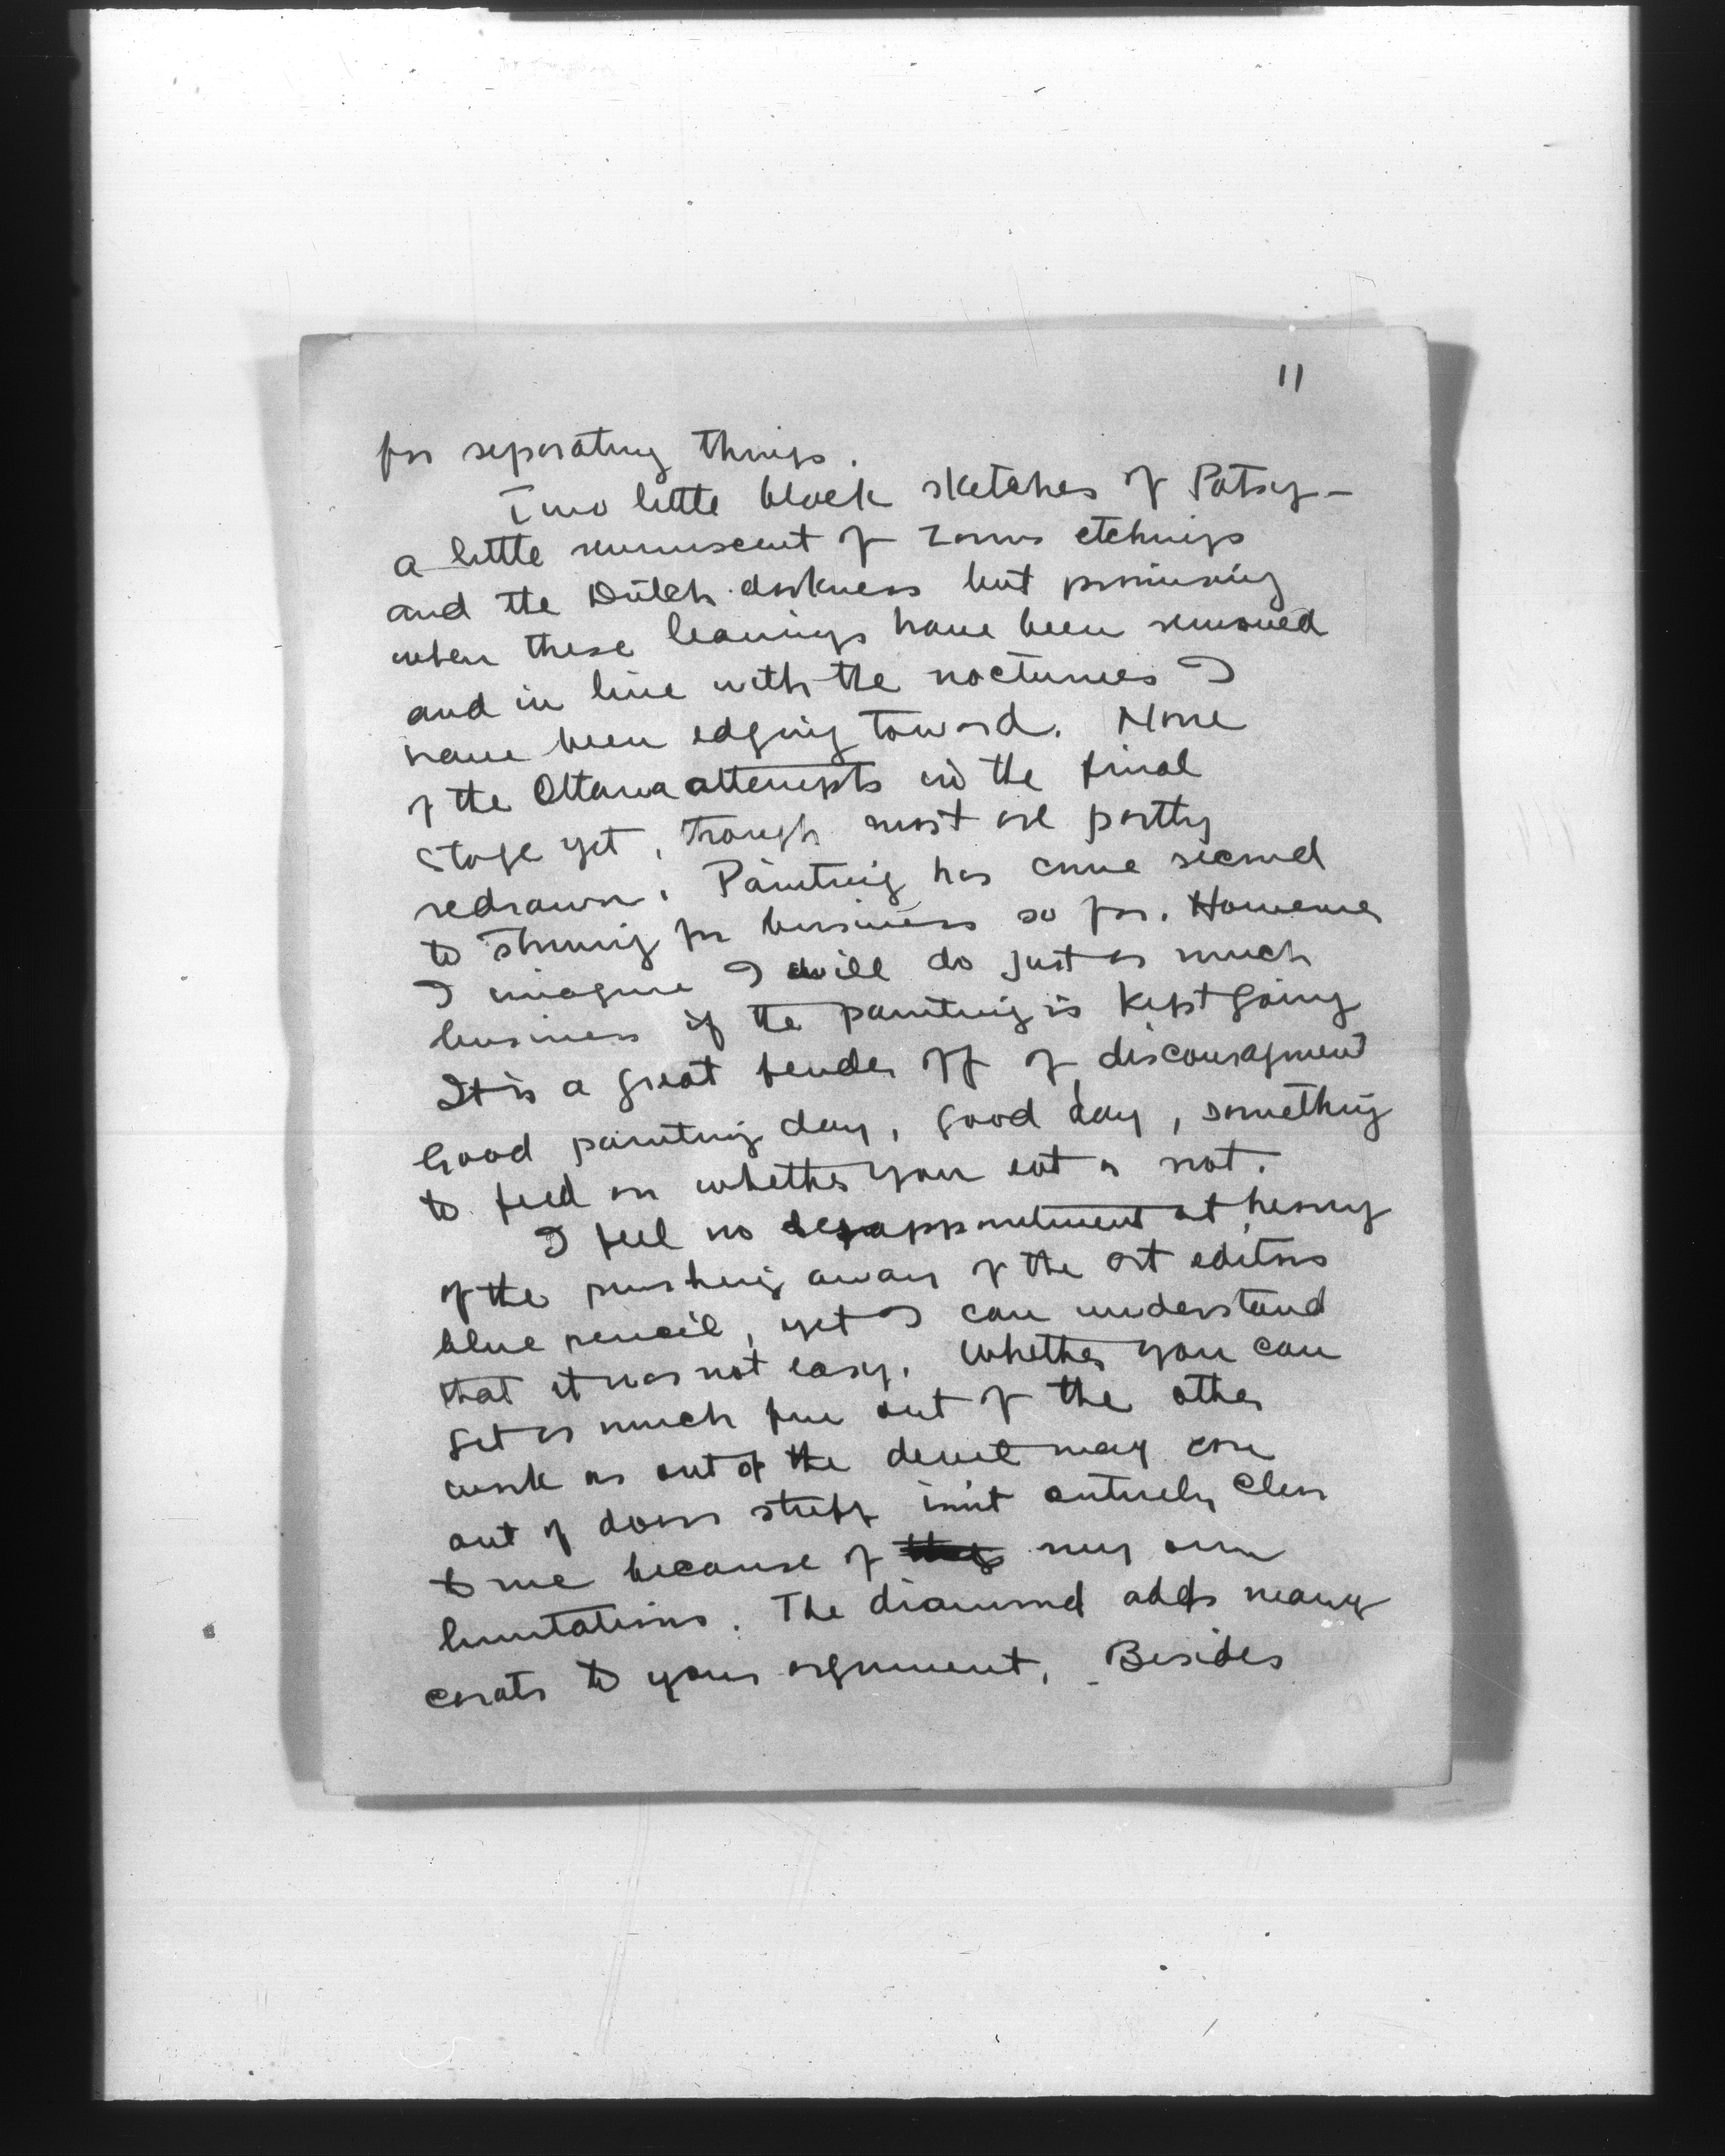 11
for separating things.
Two little black sketches of Patsy -
a little reminiscent of Zorns etchings
and the Dutch darkness but promising
when these leanings have been removed
and in line with the nocturnes I
have been edging toward. None
of the Ottawa attempts in the final
stage yet, though most are partly
redrawn. Painting has come second
to striving for business so far. However
I imagine I will do just as much
business if the painting is kept going
It is a great fender off of discouragment
Good painting day, good day, something
to feed on whether you eat or not.
I feel no disappointment at hearing
of the pushing away of the art editors
blue pencil, yet I can understand
that it was not easy. Whether you can
get as much fun out of the other
work as out of the devil may care
out of doors stuff isn't entirely clear
to me because of my own
limitations. The diamond adds many
carats to your argument. Besides